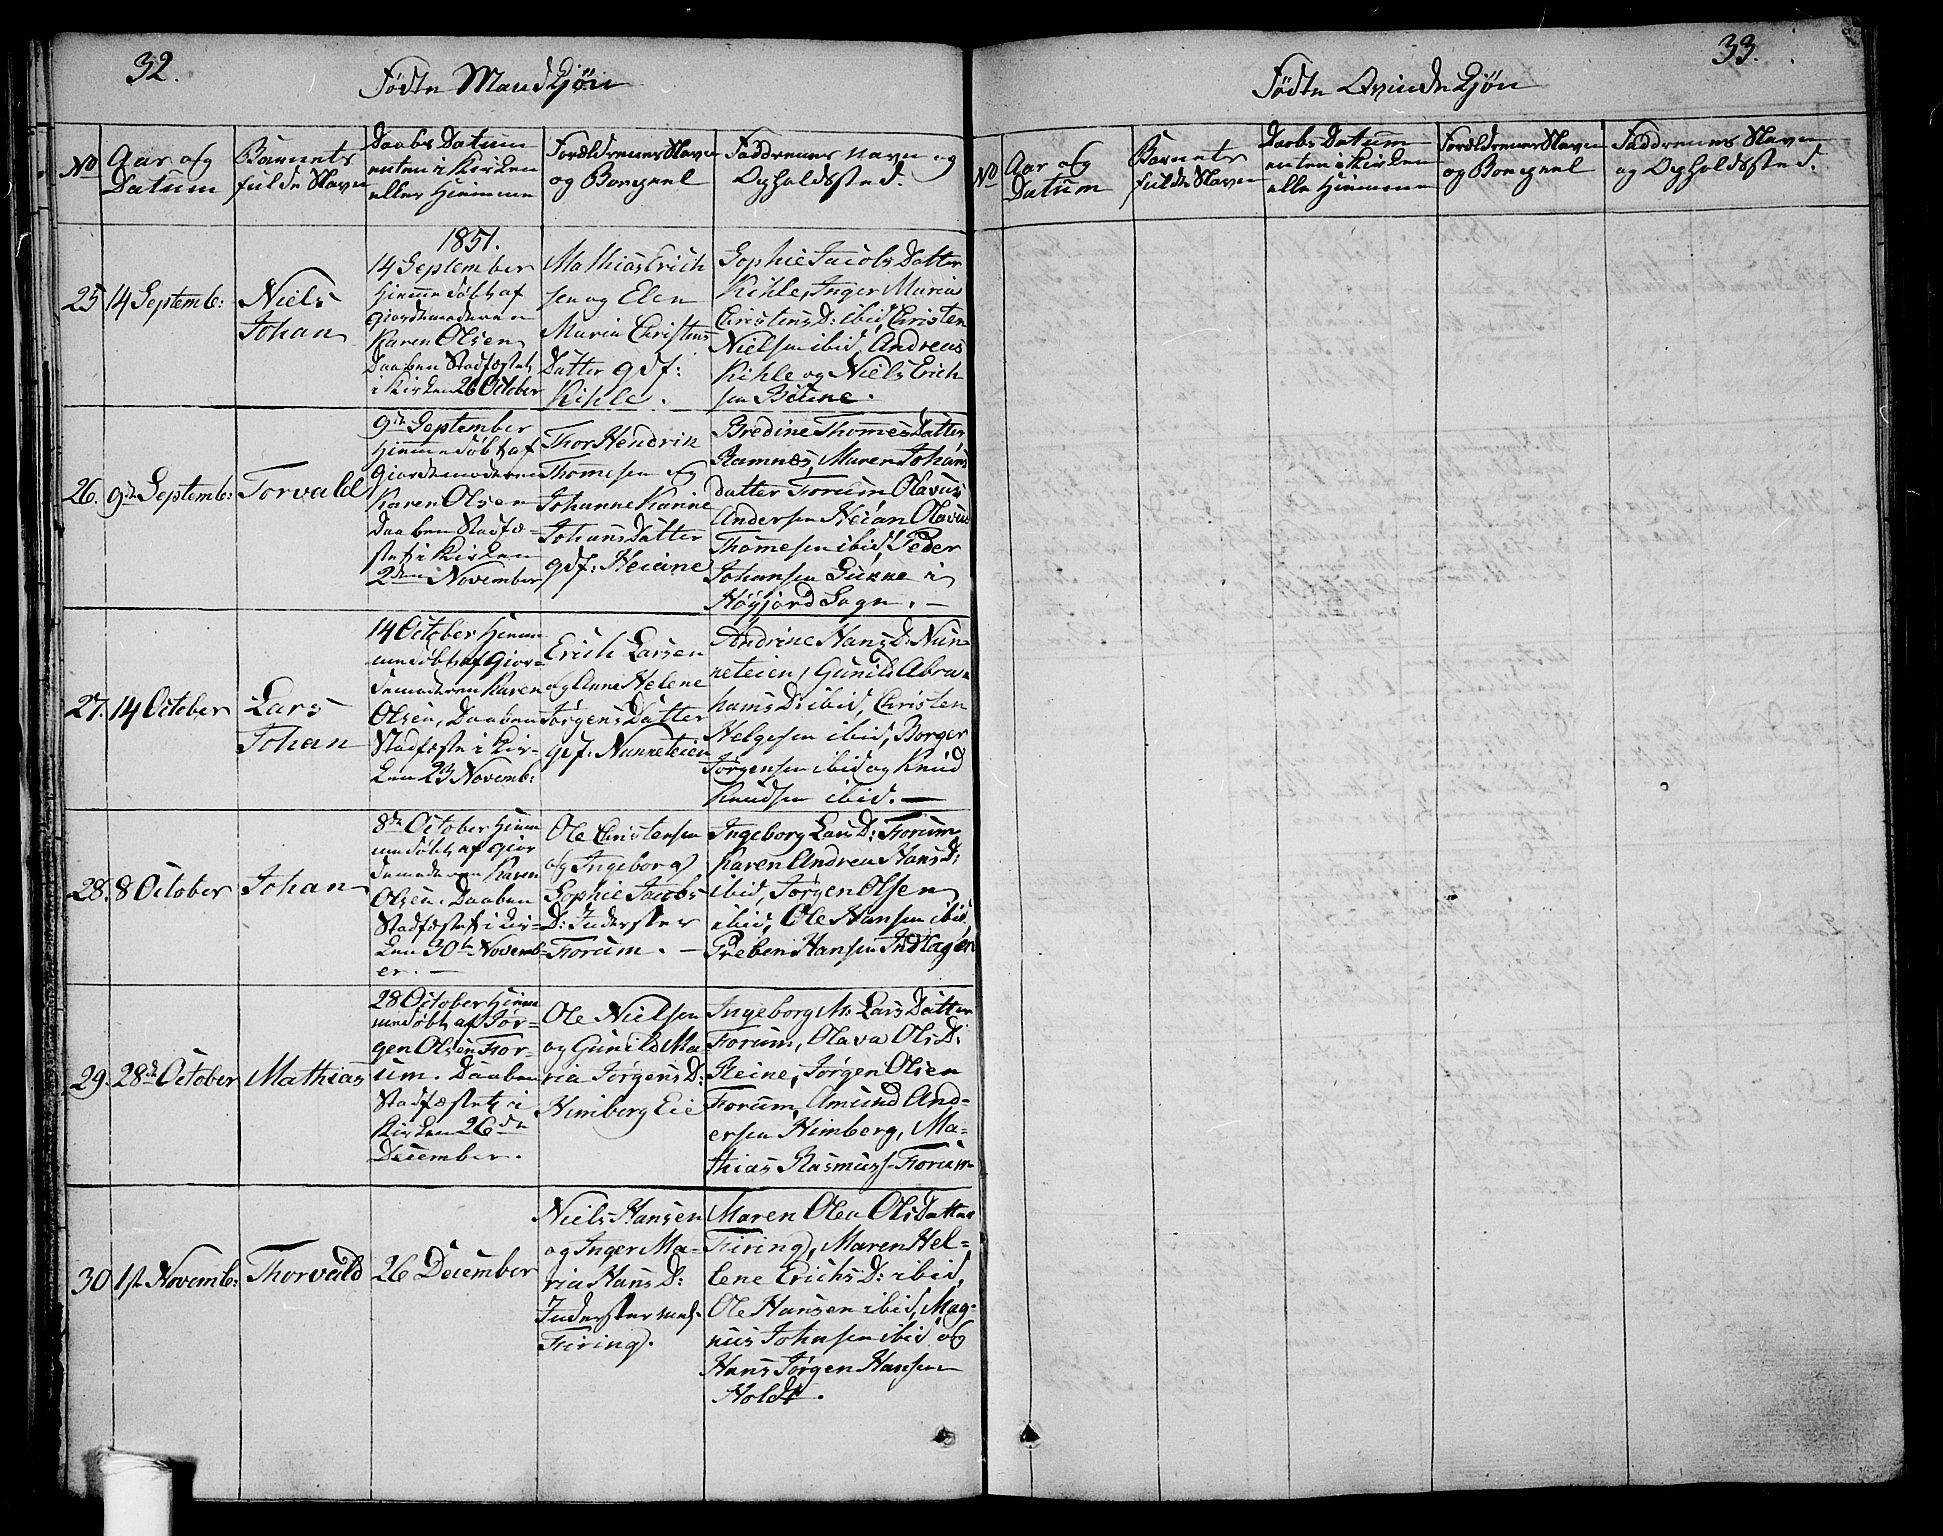 32.
Fødte Mandkjøn
No
Aar og
Datum
Barnets
fulde Navn
Daabs Datum
enten i Kirken
eller Hiemme
Forældrenes Navn
og Borgerl
Faddrenes Navn og
Opholdsted.
25
14 Septemb:
Niels
Johan
1851.
14 September
hiemmedøbt af
Giordemoderen
Karen Olsen
Daaben Stadfæstet
i Kirken 26 October
Mathias Erich
sen og Elen
Maria Christens
Datter gdf:
Kihle.
Sophie Jacobs Datter
Kihle, Inger Maria
Christens D: ibid, Christen
Nielsen ibid, Andreas
Kihle og Niels Erich
sen
26.
9de Septemb:
Torvald
9de September
hiemmedøbt af
Giordemoderen
Karen Olsen
Daaben Stadfæ-
stet i Kirken
2den November
Thor Hendrik
Thomesen og
Johanne Karine
Johans Datter
gdf: Heiane
Bredine Thomes Datter
Ramnæs, Maren Johans
datter Forum, Olavus
Andersen Heian, Olavus
Thomesen ibid, Peder
Johansen Gunne i
Høyjord Sogn. —
27.
14 October
Lars
Johan
14 October hiem
medøbt af Gior-
demoderen Karen
Olsen, Daaben
Stadfæste i Kir-
ken 23 Novemb:
Erich Larsen
og Anne Helene
Jørgens Datter
gdf: Nunneteien
Andrine Hans D: Nun-
neteien, Gunild Abra-
hams D: ibid, Christen
Helgesen ibid, Borger
Jørgensen ibid og Knud
Knudsen ibid. —
28.
8 October
Johan
8de October hiem
medøbt af Gior
demoderen Karen
Olsen. Daaben
Stadfæstet i Kir-
ken 30te Novemb-
er. —
Ole Christensen
og Ingeborg
Sophie Jacobs
D: Inderster
Forum. —
Ingeborg Lars D: Forum
Karen Andrea Hans D:
ibid, Jørgen Olsen
ibid, Ole Hansen ibid,
Preben Hansen Indlagen
29.
28de October
Mathias
28 October hiem
medøbt af Jør-
gen Olsen For-
um. Daaben
Stadfæstet i
Kirken 26de
December.
Ole Nielsen
og Gunild Ma-
ria Jørgens D:
Himberg Eie
Ingeborg M: Lars Datter
Forum, Olava Ols D:
Heine, Jørgen Olsen
Forum, Amund And-
ersen Himberg, Ma-
thias Rasmuss- Forum
30
1ste Novemb:
Thorvald
26 December
Niels Hansen
og Inger Ma-
ria Hans D:
Inderster
Firing.
Maren Olea Ols Datter
Firing, Maren Hel-
lene Erichs D: ibid,
Ole Hansen ibid, Mag-
nus Johnsen ibid og
Hans Jørgen Hansen
Holdt.
33.
Fødte Qvindekjøn
No
Aar og
Datum
Barnets
fulde Navn
Daabs Datum
enten i Kirken
elle Hiemme
Forældrenes Navn
og Borgerl
Faddrenes Navn
og Opholdsted.